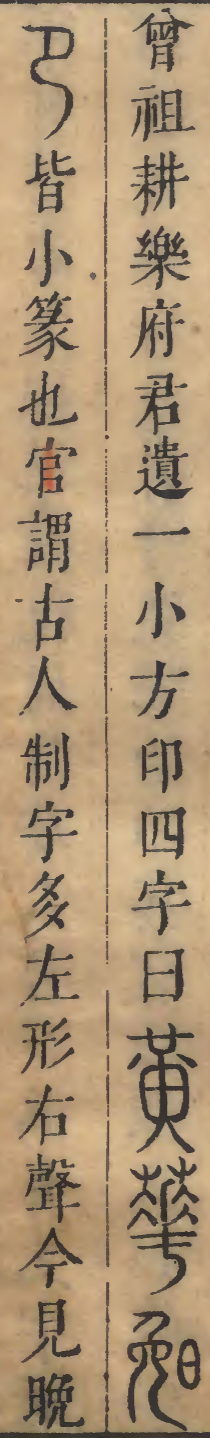 曾祖耕樂府君遺一小方印四字曰黃華晚
卩皆小篆也官謂古人制字多左形右聲今見晚